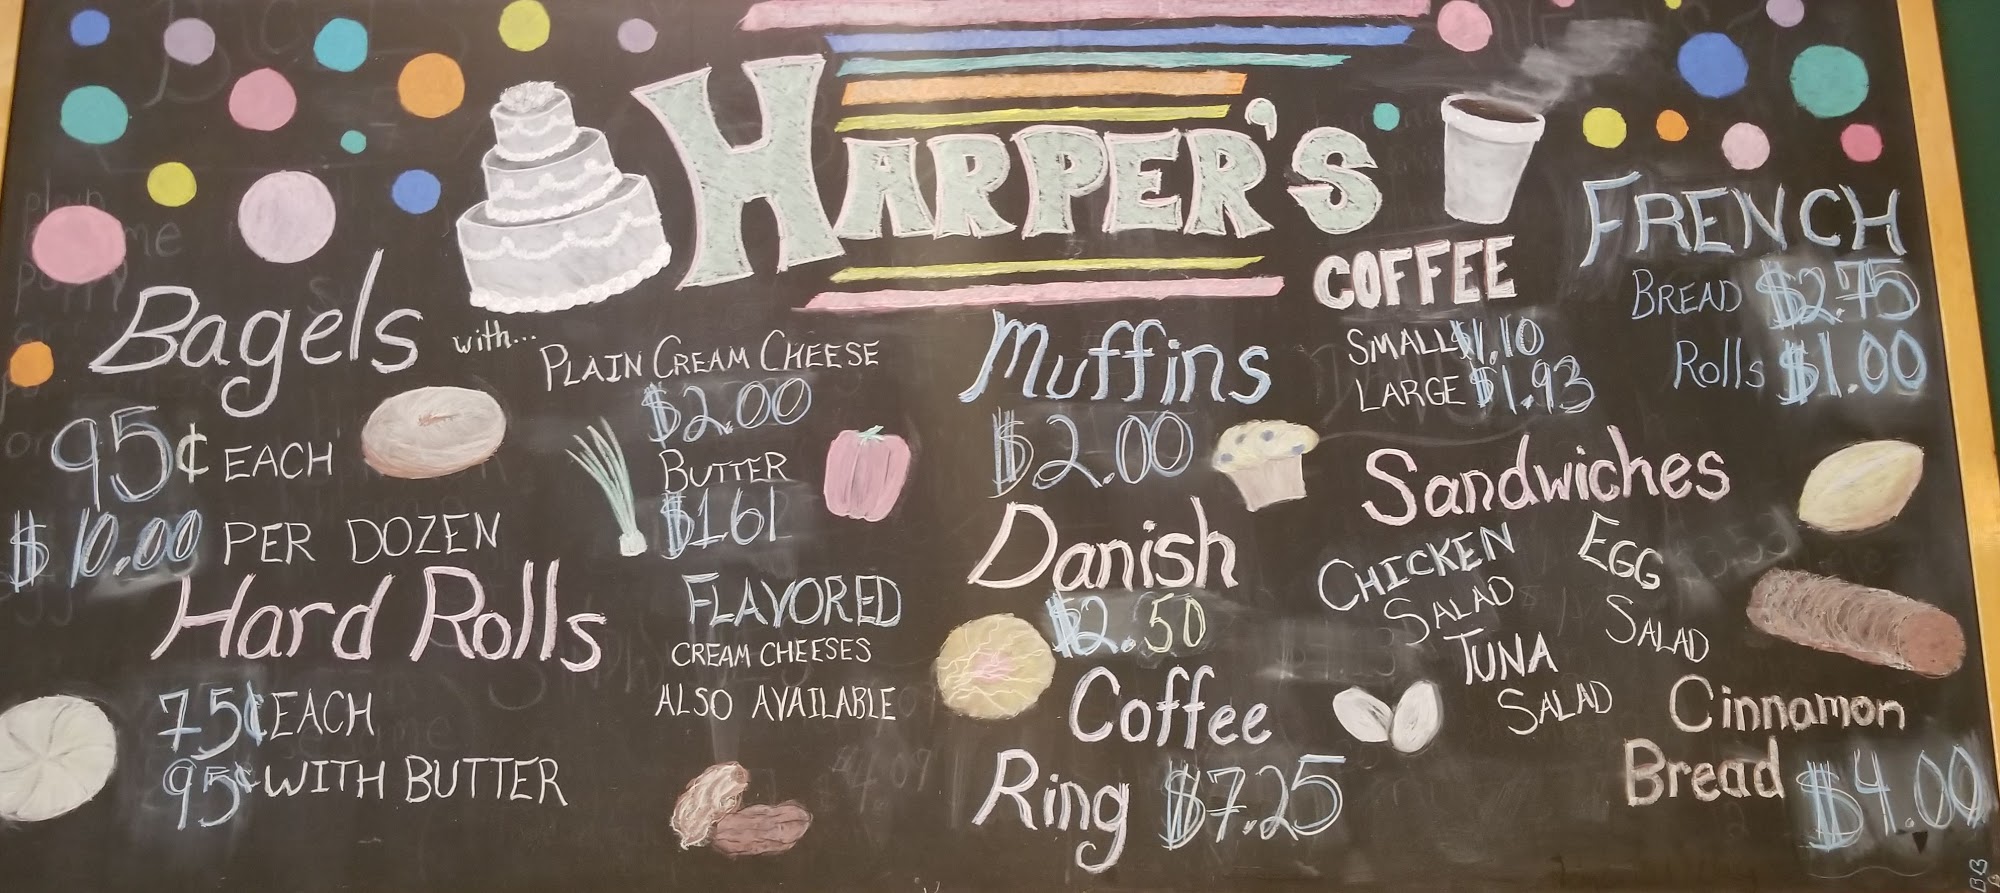 HARPER'S
Bagels
95¢ EACH
$10.00 PER DOZEN
with...
PLAIN CREAM CHEESE
$2.00
BUTTER
$1.61
FLAVORED
CREAM CHEESES
ALSO AVAILABLE
Hard Rolls
75¢ EACH
95¢ WITH BUTTER
Muffins
$2.00
Danish
$2.50
Coffee
Ring $7.25
COFFEE
SMALL $1.10
LARGE $1.93
FRENCH
BREAD $2.75
Rolls $1.00
Sandwiches
CHICKEN
SALAD
EGG
SALAD
TUNA
SALAD
Cinnamon
Bread $4.00